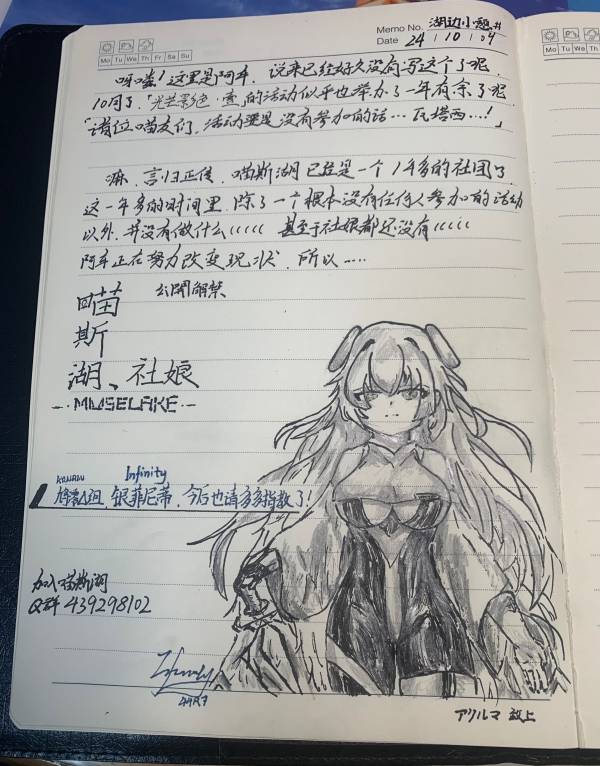 Memo No. 湖边小憩#
Date 24/10/04
Mo Tu We Th Fr Sa Su
Mo Tu We Th
呀喽！这里是阿车，说来已经好久没有写这个了呢，
10月了，「光芒景色·壹」的活动似乎也举办了一年有余了呢，
「诸位喵友们，活动要是没有参加的话…瓦塔西…！」
嘛，言归正传，喵斯湖已经是一个1年多的社团了
这一年多的时间里，除了一个根本没有任何人参加的活动
以外，并没有做什么
甚至于社娘都还没有
阿车正在努力改变现状，所以……
喵
斯
湖、社娘
公開解禁
-·MUSELAKE·-
Infinity
银菲尼蒂，今后也请多多指教了！
加入喵斯湖
Q群 439298102
アリルマ 致上